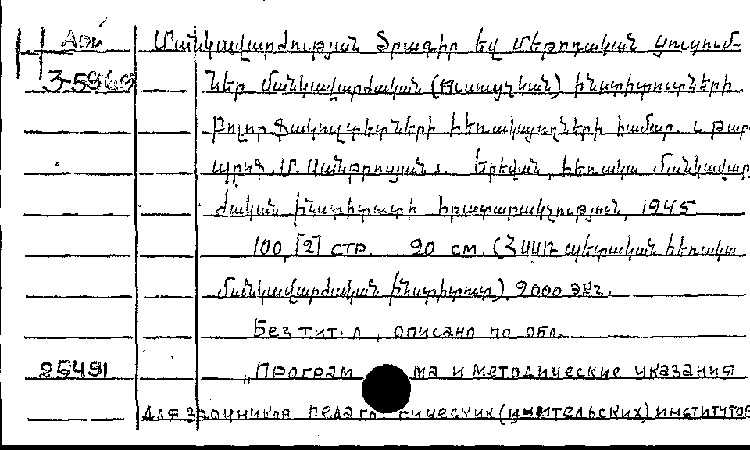 Մանկավարժության ծրագիր եվ մեթոդական ցուցում-
3-5969 ներ մանկավարժական (ուսուցչական) ինստիտուտների
բոլոր ֆակուլտետների հեռակայողների համար.
Երեվան, հեռակա մանկավար
ժական ինստիտուտի հրատարակչություն, 1945
100, [2] стр. 20 см. (ՀՍՍՌ պետական հեռակա
մանկավարժական ինստիտուտ) 2000 экз.
Без тит. л., описано по обл.
26491 „Програм ма и методические указания
для заочников педаго гических (учительских) институтов